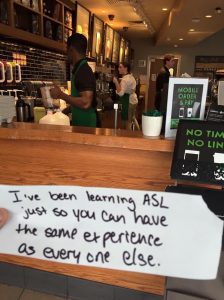 MOBILE
ORDER &
PAY
NO TIME
NO LIN
I've been learning ASL
just so you can have
the same experience
as everyone else.